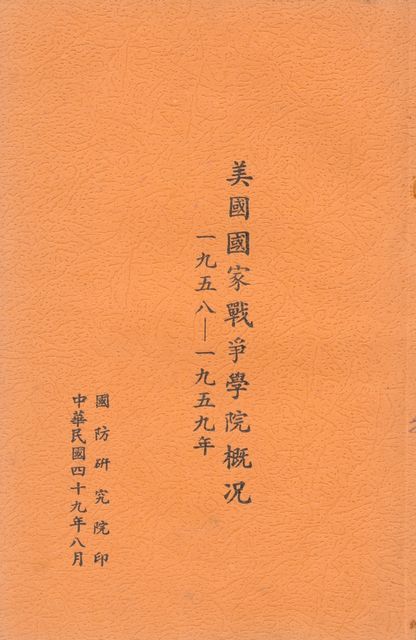 美國國家戰爭學院概況
一九五八—一九五九年
國防研究院印
中華民國四十九年八月